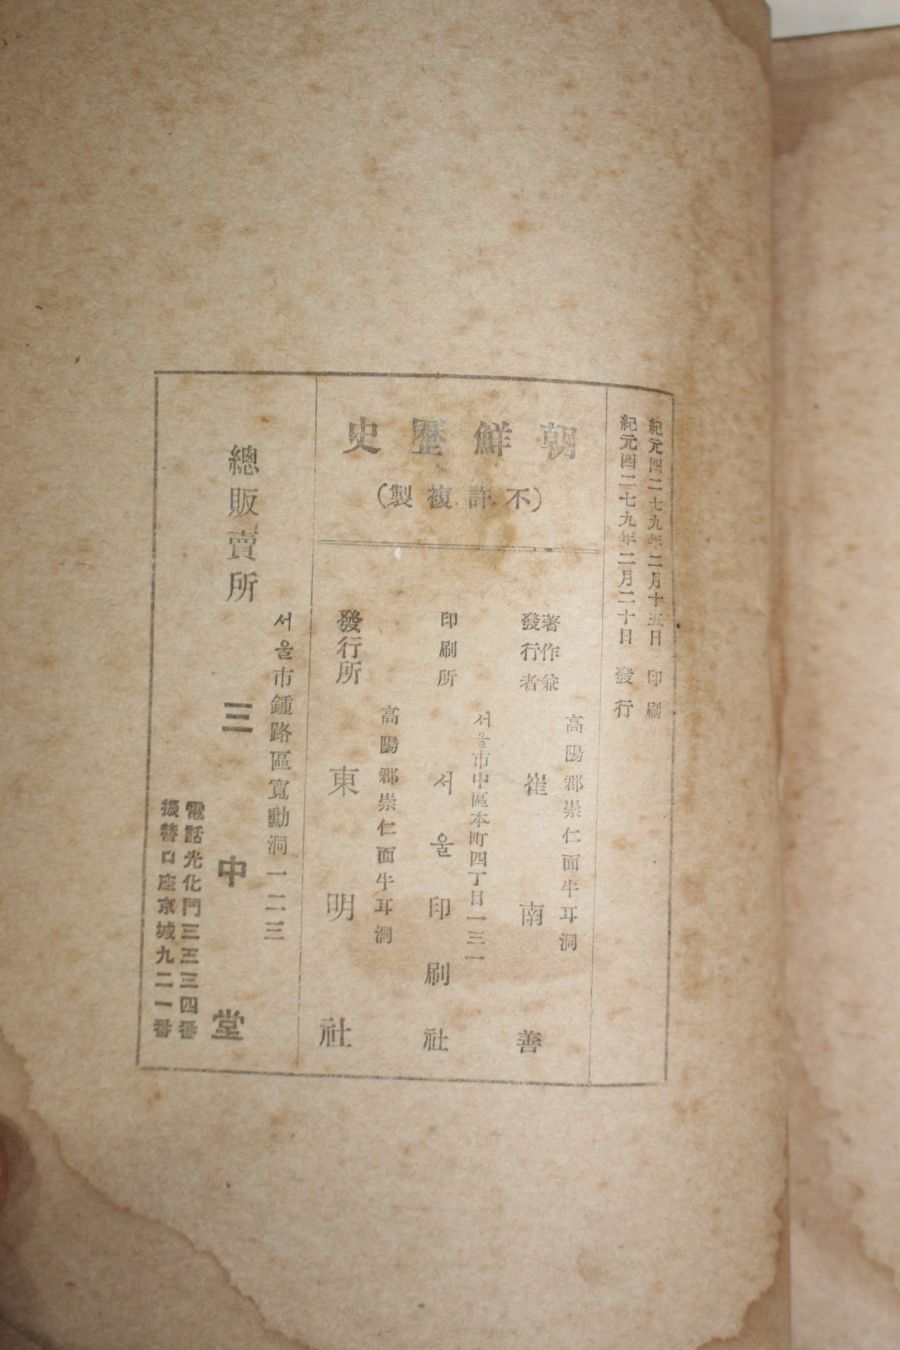 紀元四二七九年二月十五日 印刷
紀元四二七九年二月二十日 發行
朝鮮歷史
(不許複製)
著作兼
發行者
高陽郡崇仁面牛耳洞
崔南善
印刷所
서울市中區本町四丁目一三一
서울印刷社
發行所
高陽郡崇仁面牛耳洞
東明社
總販賣所
서울市鍾路區寬勳洞一二三
三中堂
電話光化門三三三四番
振替口座京城九二一番